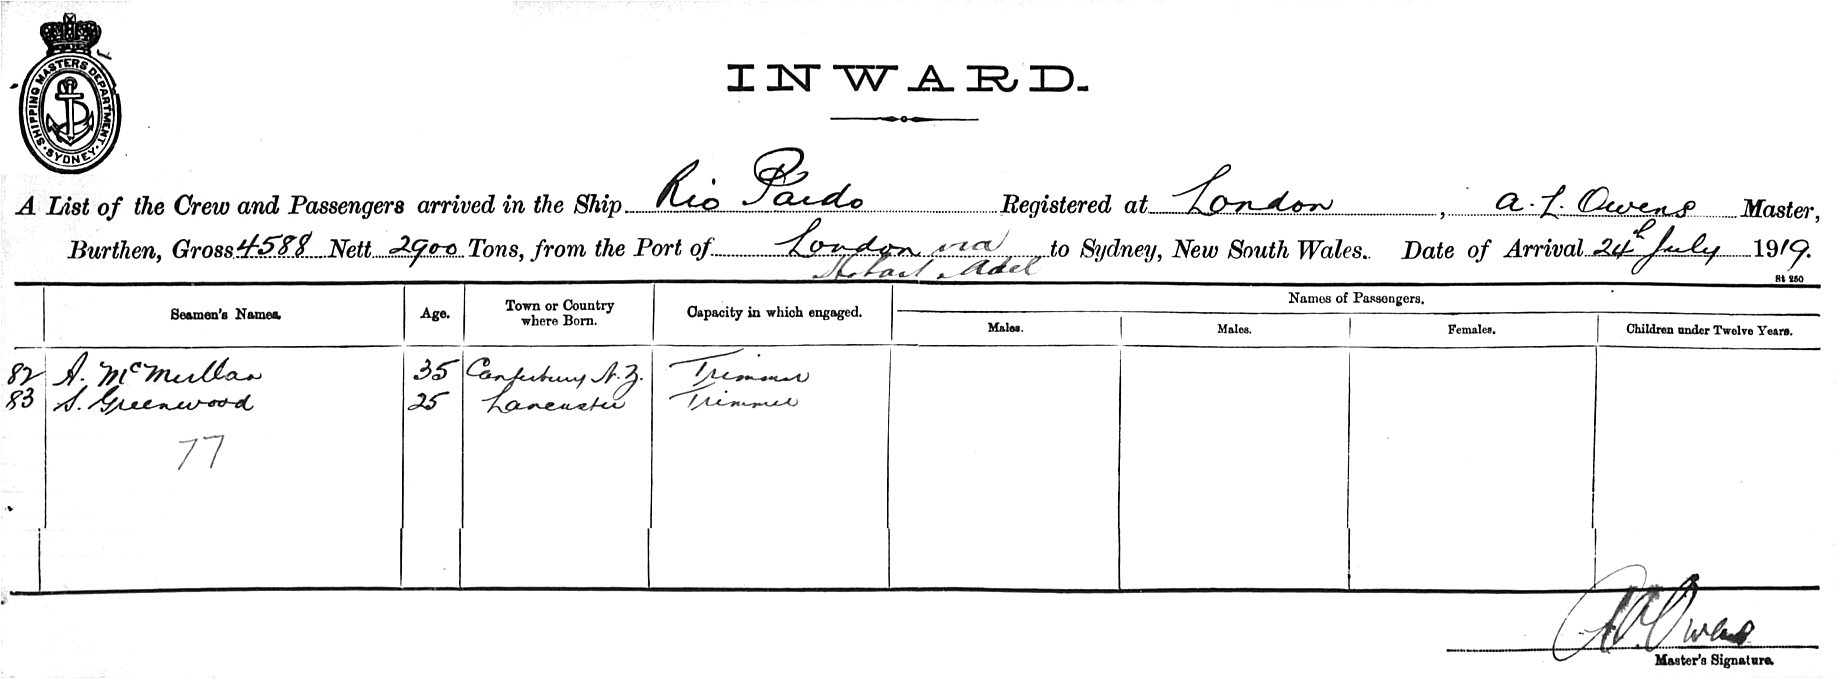 SHIPPING MASTERS DEPARTMENT. SYDNEY.
INWARD.
A List of the Crew and Passengers arrived in the Ship Rio Pardo Registered at London, A. L. Owens Master,
Burthen, Gross 4588 Nett 2900 Tons, from the Port of London via to Sydney, New South Wales. Date of Arrival 24th July 1919.
Hobart & Adel
Bt 250
Seamen's Names. Age. Town or Country where Born. Capacity in which engaged. Names of Passengers.
Males. Males. Females. Children under Twelve Years.
82 A. McMullan 35 Canterbury N.Z. Trimmer
83 S. Greenwood 25 Lancaster Trimmer
77
A. L. Owens
Master's Signature.